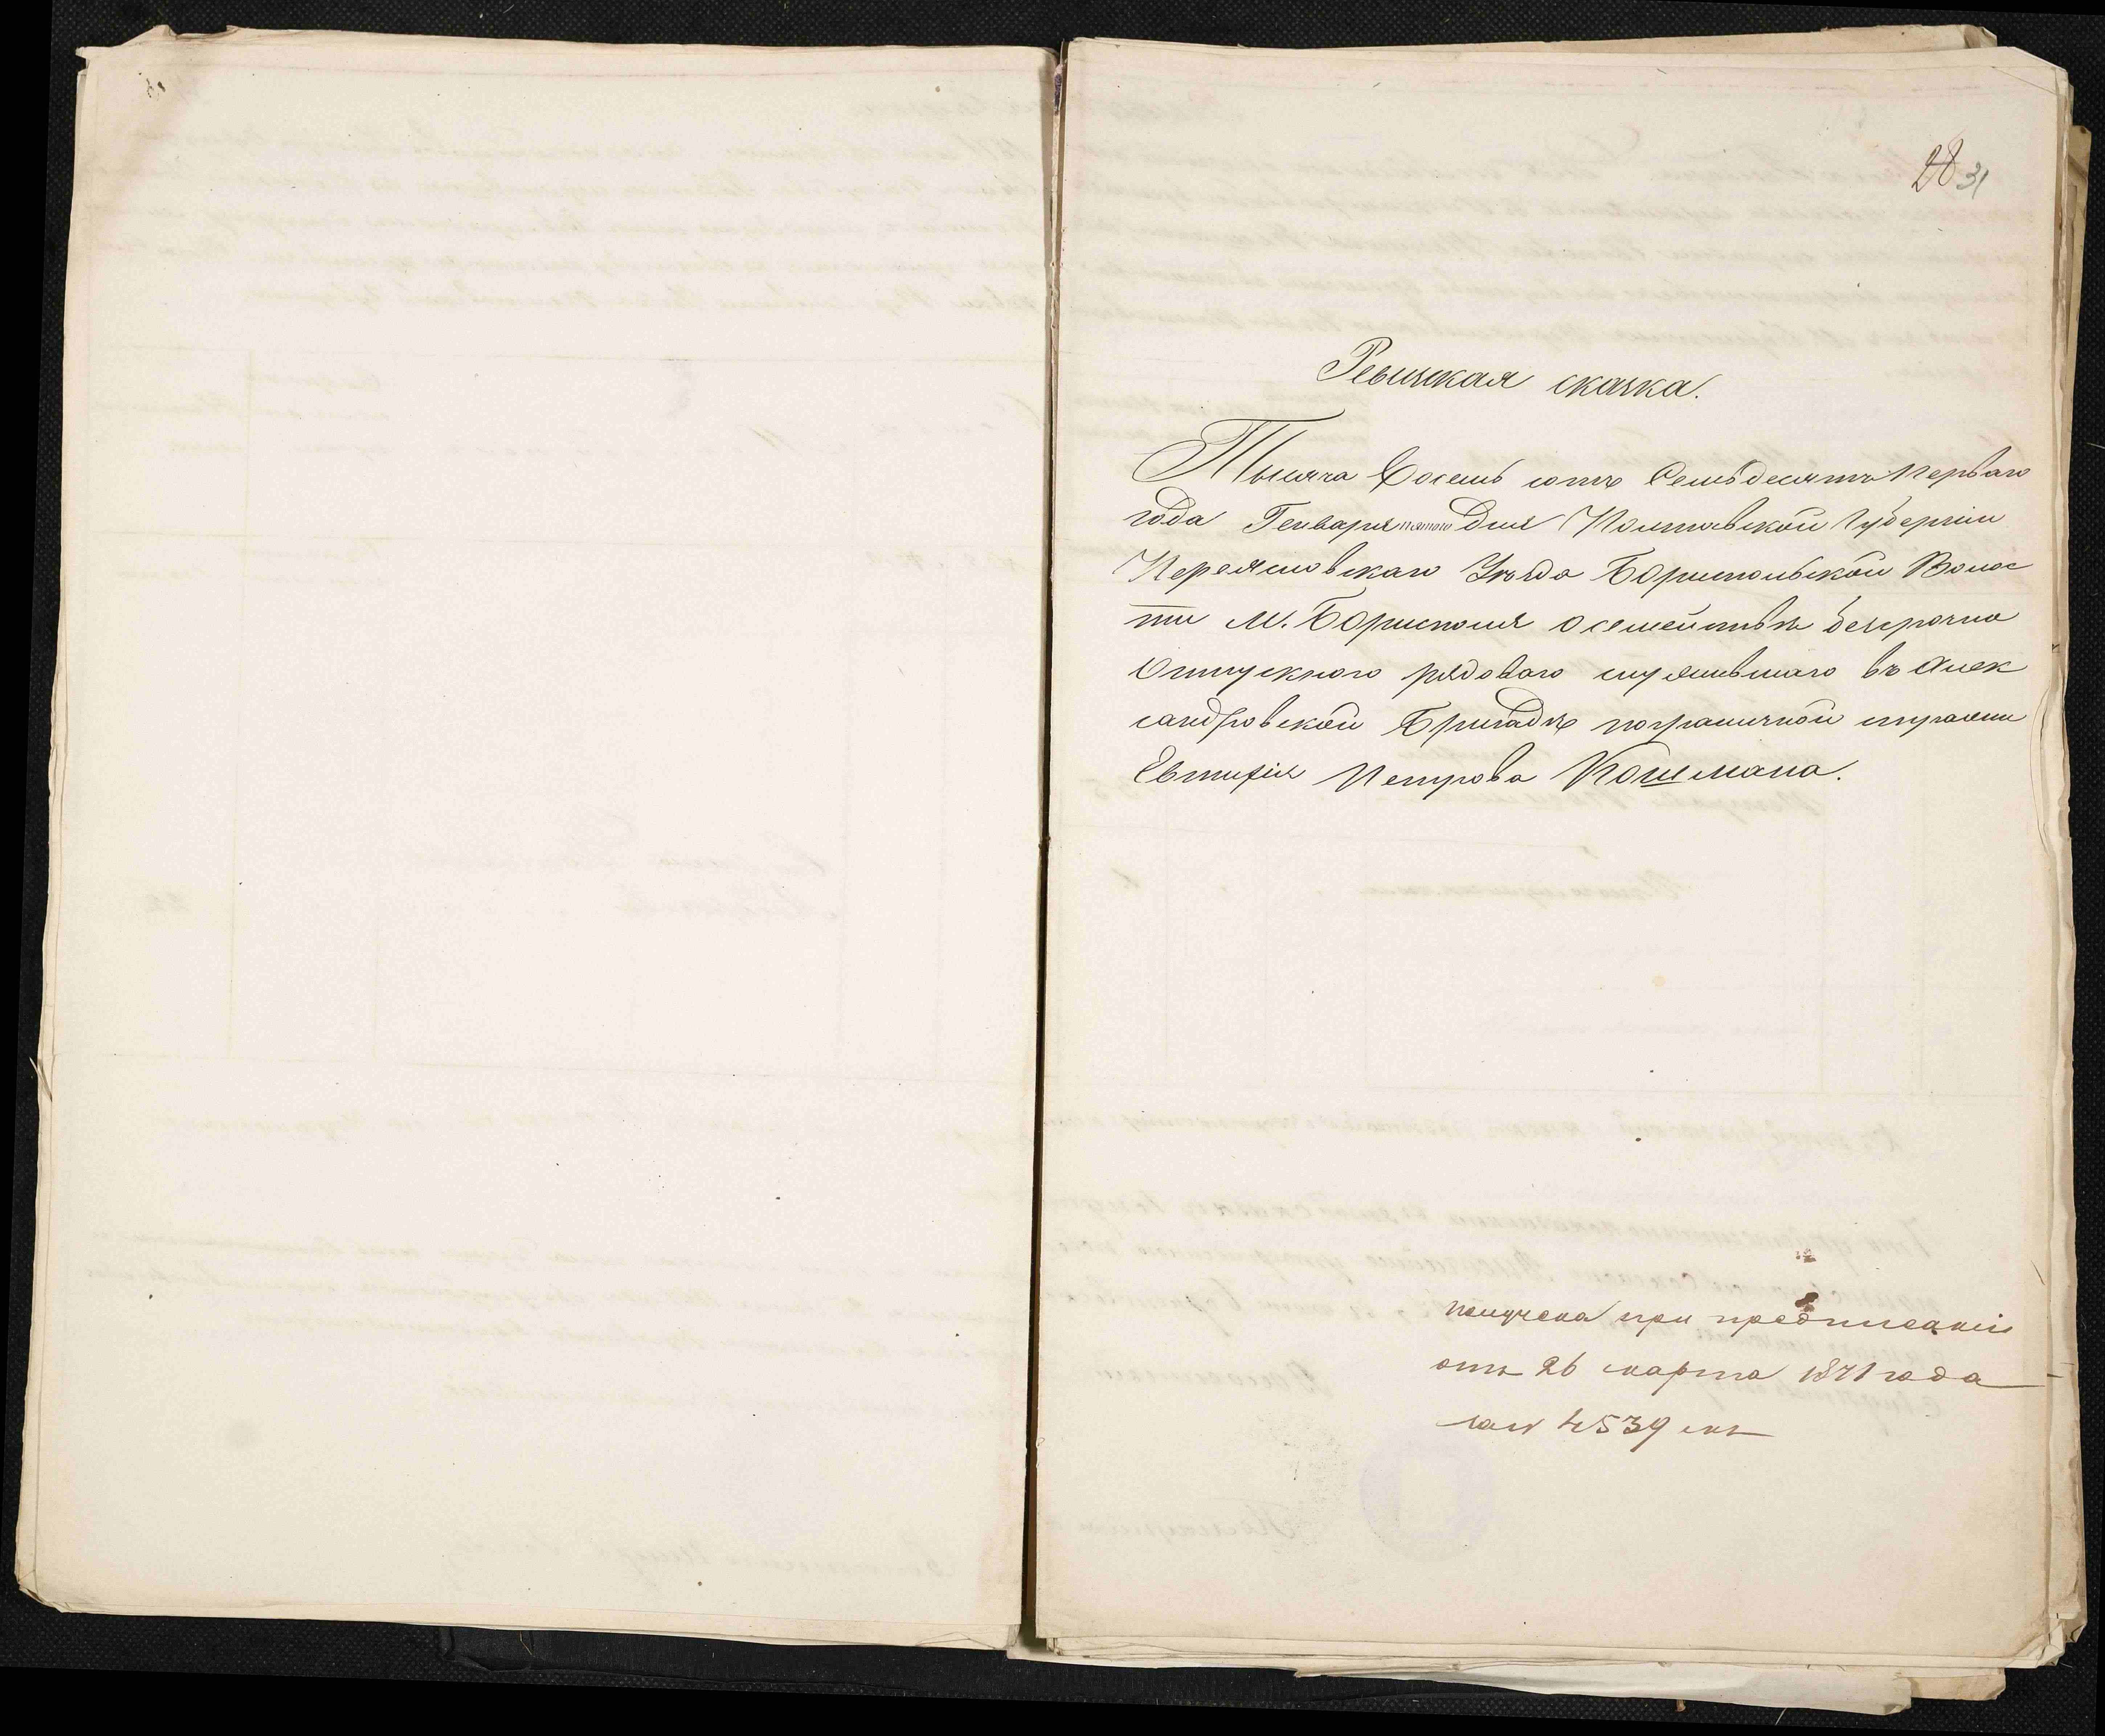 28 31
Ревизская сказка.
Тысяча Восемь сотъ Семьдесятъ перваго
года Генваря пятого Дня Полтавской Губерніи
Переяславскаго Уѣзда Бориспольской Волос
ти М. Борисполя о семействѣ безсрочно
отпускного рядоваго служившаго въ Алек
сандровской Бригадѣ пограничной стражи
Евтифія Петрова Кошмана.
получена при предписаніи
отъ 26 марта 1871 года
за № 4539 мъ